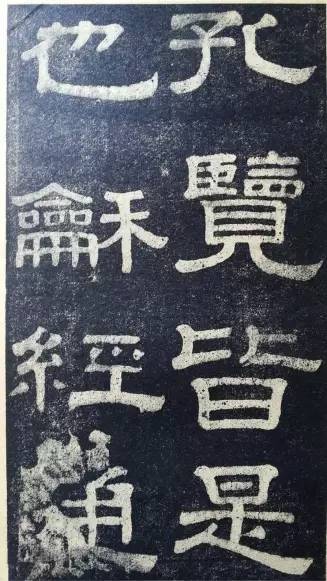 孔覽皆是
也龢經